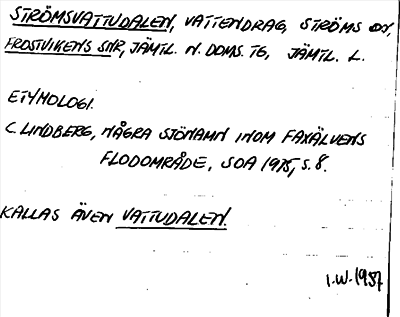 STRÖMSVATTUDALEN, VATTENDRAG, STRÖMS OCH
FROSTVIKENS SNR, JÄMTL. N. DOMS. TG, JÄMTL. L.
ETYMOLOGI.
C LINDBERG, NÅGRA SJÖNAMN INOM FAXÄLVENS
FLODOMRÅDE, SOA 1975, S. 8.
KALLAS ÄVEN VATTUDALEN.
I.W. 1987